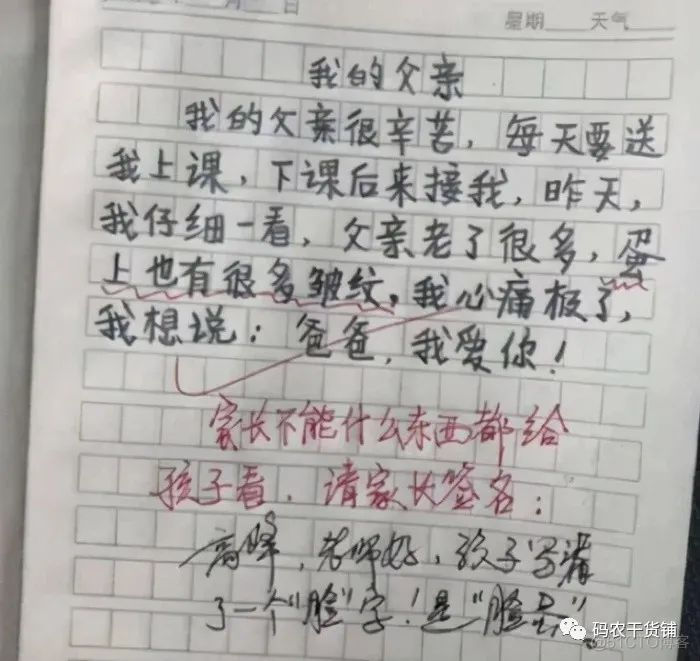 日 星期 天气
我的父亲
我的父亲很辛苦，每天要送
我上课，下课后来接我，昨天，
我仔细一看，父亲老了很多，蛋
上也有很多皱纹，我心痛极了，
我想说：爸爸，我爱你！
家长不能什么东西都给
孩子看，请家长签名：
高峰，老师好，孩子写漏
了一个“脸”字！是“脸蛋”。
码农干货铺
@51CTO博客